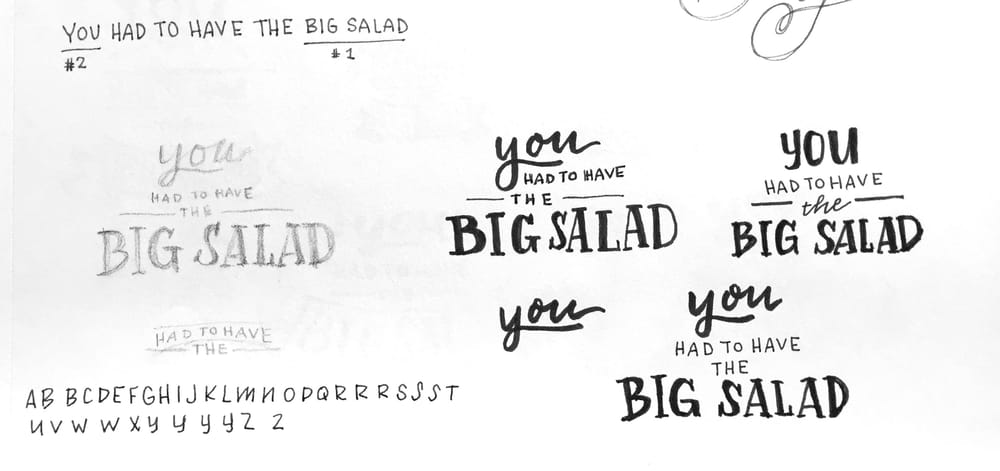 YOU HAD TO HAVE THE BIG SALAD
#2 #1
you
HAD TO HAVE
THE
BIG SALAD
HAD TO HAVE
THE
you
HAD TO HAVE
THE
BIG SALAD
you
YOU
HAD TO HAVE
the
BIG SALAD
you
HAD TO HAVE
THE
BIG SALAD
AB BCDEFGHIJKLMNOPQRRRSSST
UVWWXYYYYZZ